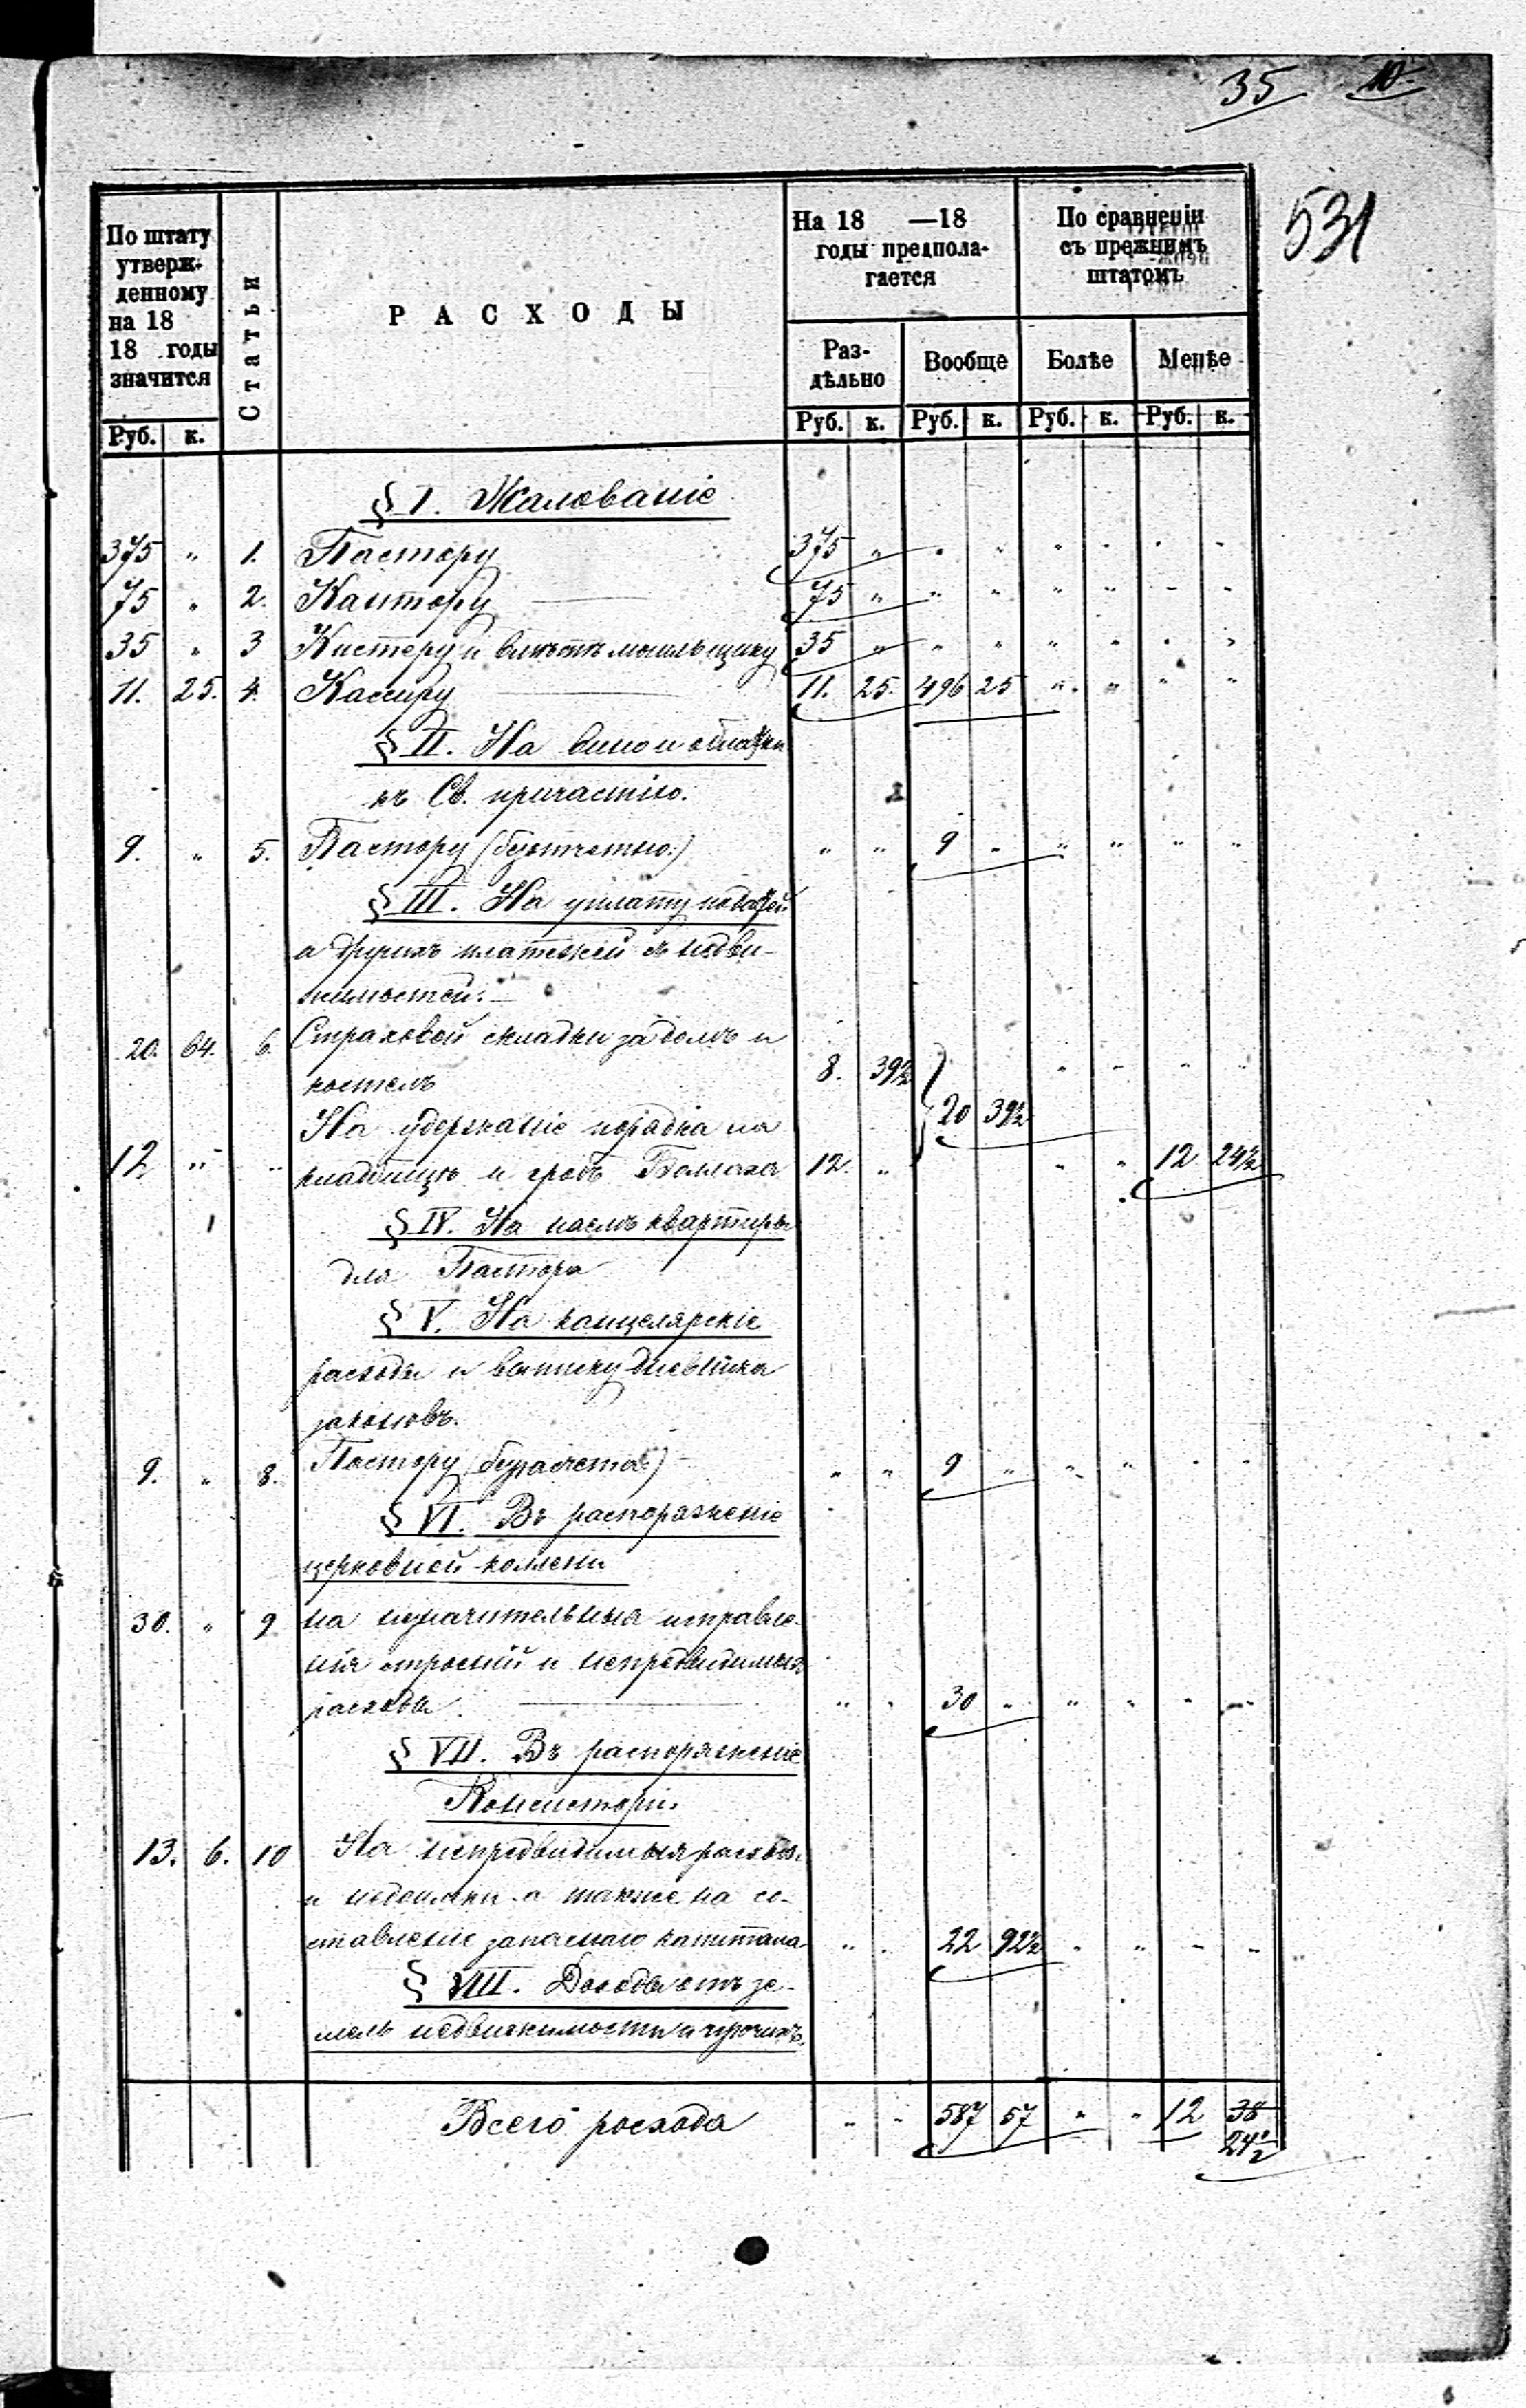 35 10
531
По штату утверж- денному на 18 18 годы значится
Статьи
РАСХОДЫ
На 18 —18 годы предпола- гается
По сравненіи съ прежнимъ штатомъ
Раз- дѣльно Вообще Болѣе Менѣе
Руб. к. Руб. к. Руб. к. Руб. к. Руб. к.
§ I. Жалованіе
375 " 1. Пастору 375 " " " " " " "
75 " 2. Кантору 75 " " " " " " "
35 " 3 Кистеру и вмѣстѣ 35 " " " " " " "
11. 25. 4. Кассиру 11. 25. 496 25 " " " "
§ II. На вино и облатки
къ Св. причастію.
9. " 5. Пастору " " 9 " " " " "
§ III. На уплату податей
и другихъ платежей съ недви-
жимостей.
20. 64. 6. Страховой складки за домъ и
костелъ 8. 39½ " " " "
20 39½
На удержаніе порядка на
12 " " кладбищѣ и гробъ 12. " " " 12 24½
§ IV. На наемъ квартиры
для Пастора
§ V. На канцелярскіе
расходы и выписку дневника
законовъ.
9. " 8. Пастору " " 9 " " " " "
§ VI. Въ распоряженіе
церковной коллегіи
30. " 9 на незначительныя исправле-
нія строеній и непредвидимыя
расходы " " 30 " " " " "
§ VII. Въ распоряженіе
Консисторіи.
13. 6. 10 На непредвидимыя расходы
и недоимки а также на со-
ставленіе запаснаго капитала " " 22 92½ " " " "
§ VIII. Доходы отъ зе-
мель недвижимости и прочихъ.
Всего расхода " " 587 57 " " 12 38
24½